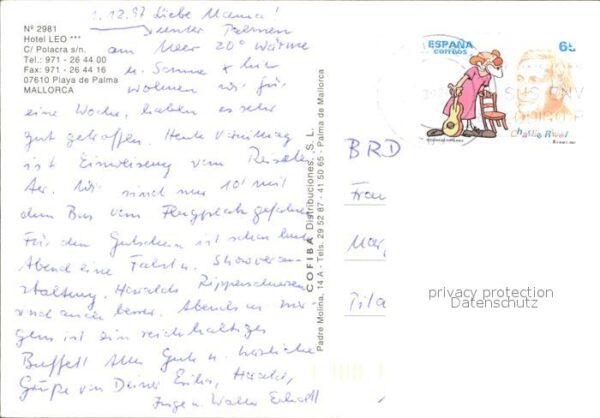 1.12.97 Liebe Mama!
Nº 2981
Hotel LEO ***
C/ Polacra s/n.
Tel.: 971 - 26 44 00
Fax: 971 - 26 44 16
07610 Playa de Palma
MALLORCA
unter Palmen
am Meer 20° Wärme
u. Sonne hier
wohnen wir für
eine Woche, haben es sehr
gut getroffen. Heute Vormittag
ist Einweisung vom
Wir sind nur 10' mit
dem Bus vom Flugplatz gefahren
Für den Gutschein ist schon heut
Abend eine Fahrt u. Showveran-
staltung. Haralds Rippenschmerzen
sind auch besser. Abends u. mor-
gens ist ein reichhaltiges
Buffett Alles Gute u. herzliche
Grüße von Deiner Erika, Harald,
Inge u. Walter
COFIBA Distribuciones, S. L.
Padre Molina, 14 A - Tels. 29 52 87 - 41 50 65 - Palma de Mallorca
ESPAÑA
CORREOS
65
Charlie Rivel
BRD
Frau
Mar
Tita
privacy protection
Datenschutz